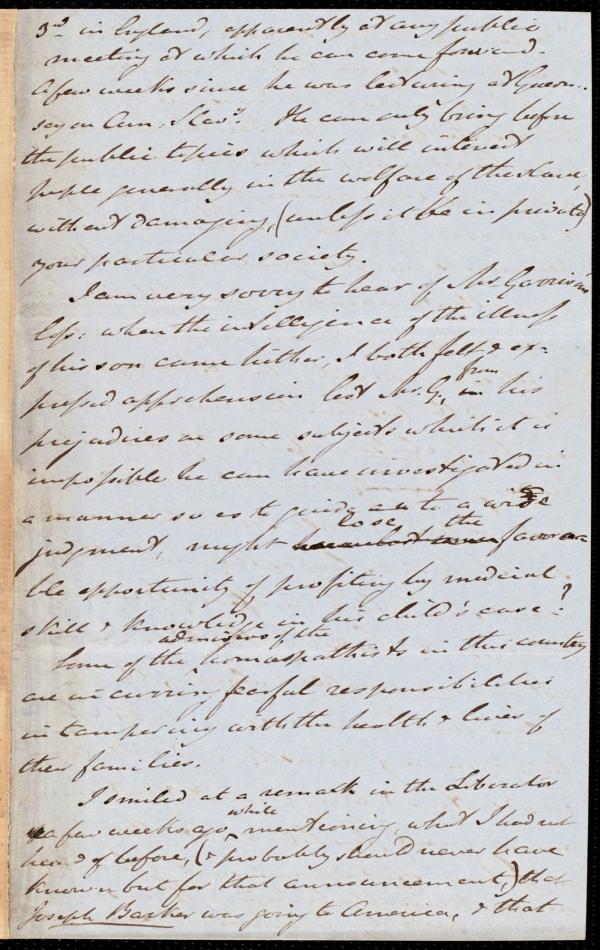 3rd in England, apparently at any public
meeting at which he can come forward.
A few weeks since he was lecturing at Guern-
sey on Am. Slavy. He can only bring before
the public topics which will interest
people generally in the welfare of the slave,
without damaging, (unless it be in private)
your particular society.
I am very sorry to hear of Mr Garrison's
loss: when the intelligence of the illness
of his son came hither, I both felt & ex-
pressed apprehension lest Mr. G., from his
prejudices on some subjects which it is
impossible he can have investigated in
a manner so as to guide to a wise
judgment, might lose the favora-
ble opportunity of profiting by medical
skill & knowledge in his child's case?
Some of the admirers of the homœopathists in this country
are incurring fearful responsibilities
in tampering with the health & lives of
their families.
I smiled at a remark in the Liberator
a few weeks ago, while mentioning, what I had not
heard of before, (& probably should never have
known but for that announcement,) that
Joseph Barker was going to America, & that